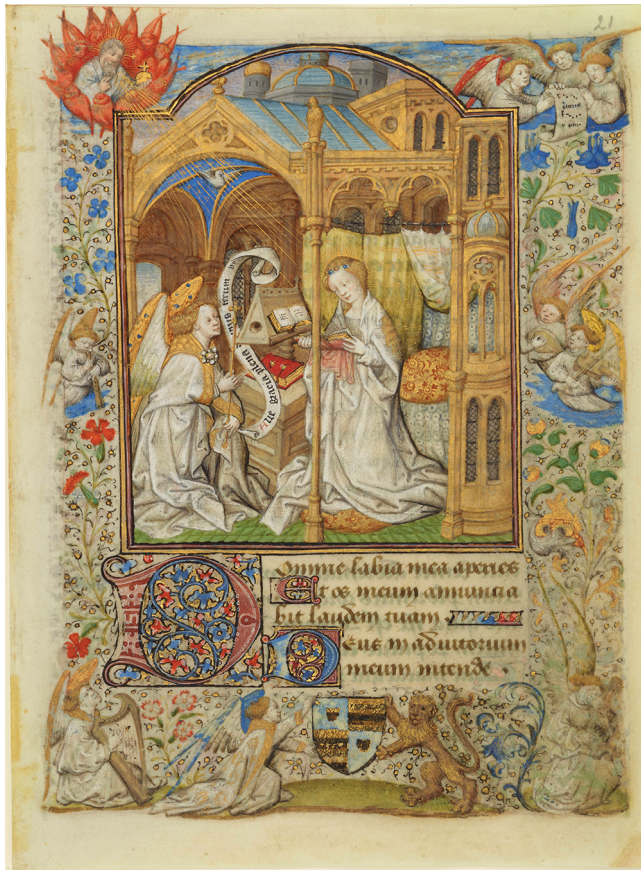 21
Ave gracia plena
omine labia mea aperies
Et os meum annuncia
bit laudem tuam
Deus in adiutorium
meum intende